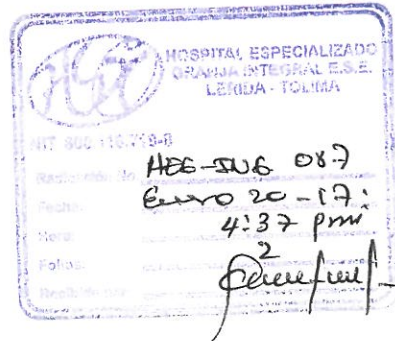 HOSPITAL ESPECIALIZADO
GRANJA INTEGRAL E.S.E.
LERIDA - TOLIMA
NIT
Radicación No. HEG-SUG 087
Fecha: Enero 20-17:
Hora: 4:37 pm
Folios: 2
Recibido por: